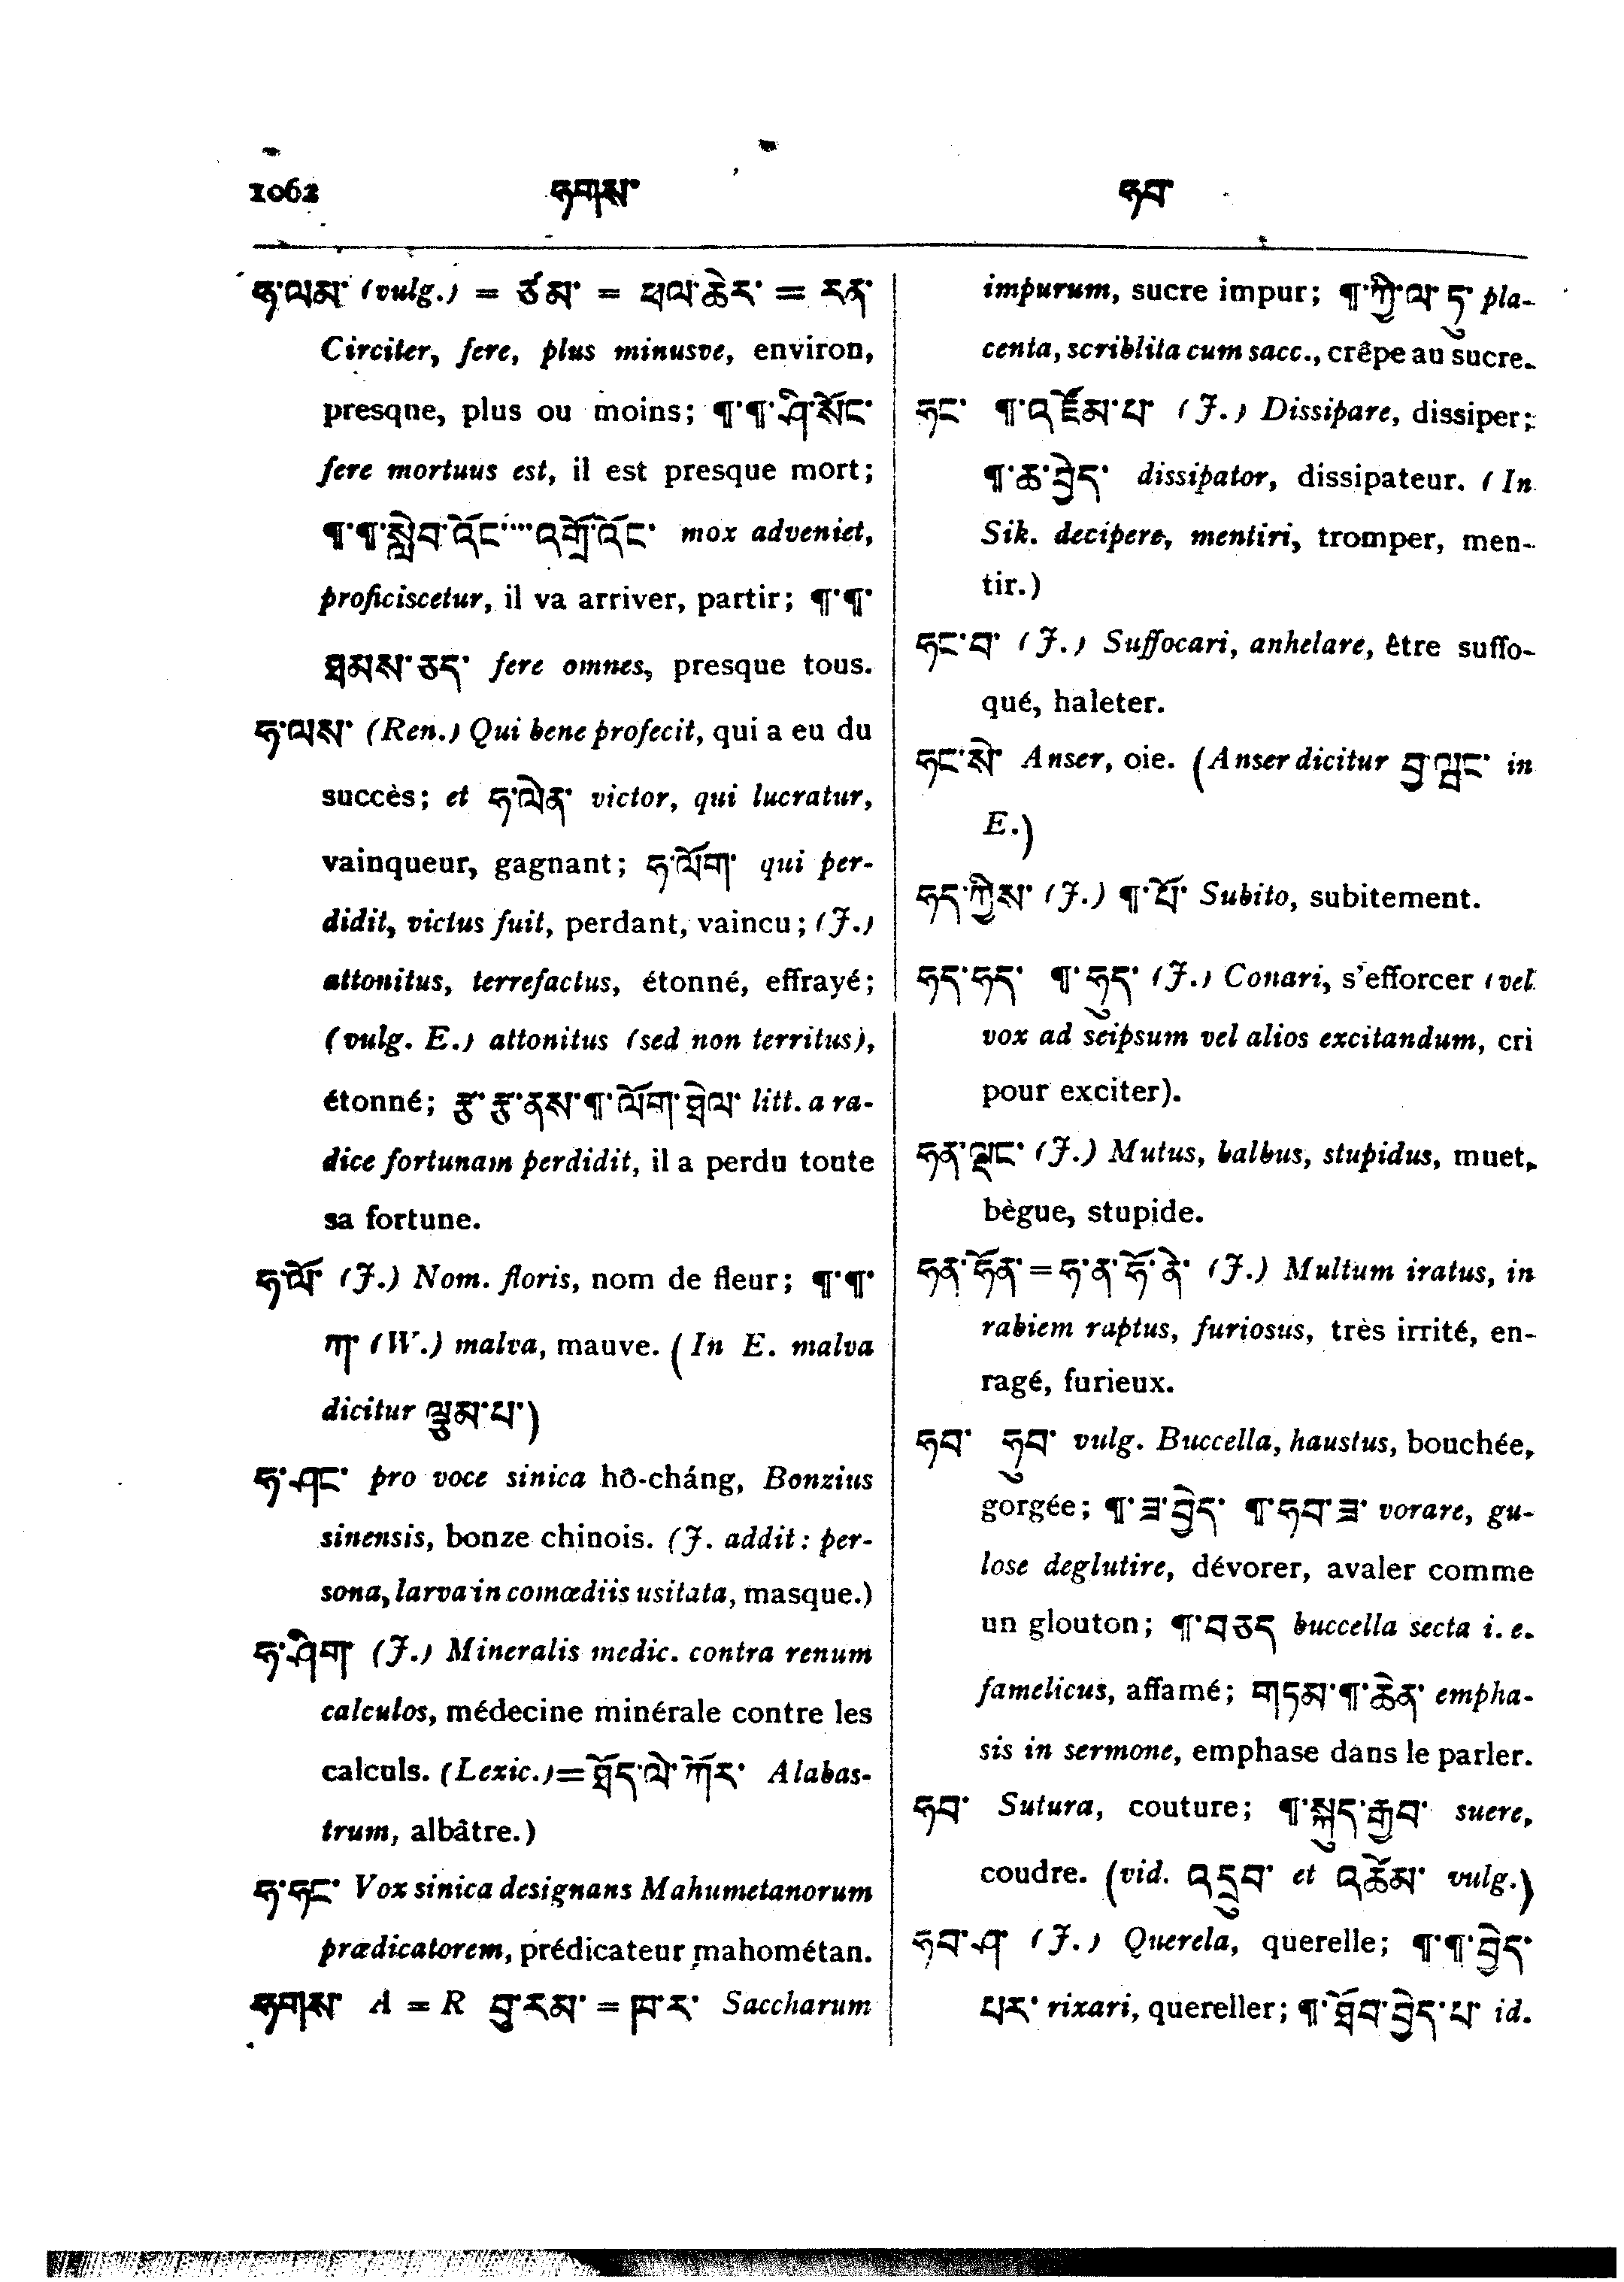 1062 ཧགས་ ཧབ་
ཧ་ལམ་ (vulg.) = ཙམ་ = ཕལ་ཆེར་ = རན་
Circiter, fere, plus minusve, environ,
presque, plus ou moins; ¶་¶་ཤི་སོང་
fere mortuus est, il est presque mort;
¶་¶་སླེབ་འོང་····འགྲོ་འོང་ mox adveniet,
proficiscetur, il va arriver, partir; ¶་¶་
ཐམས་ཅད་ fere omnes, presque tous.
ཧ་ལས་ (Ren.) Qui bene profecit, qui a eu du
succès; et ཧ་ལེན་ victor, qui lucratur,
vainqueur, gagnant; ཧ་ལོག་ qui per-
didit, victus fuit, perdant, vaincu; (J.)
attonitus, terrefactus, étonné, effrayé;
(vulg. E.) attonitus (sed non territus),
étonné; རྩ་རྩ་ནས་¶་ལོག་ཐེལ་ litt. a ra-
dice fortunam perdidit, il a perdu toute
sa fortune.
ཧ་ལོ་ (J.) Nom. floris, nom de fleur; ¶་¶་
ཀ་ (W.) malva, mauve. (In E. malva
dicitur ལྕུམ་པ་)
ཧ་ཤང་ pro voce sinica hô-cháng, Bonzius
sinensis, bonze chinois. (J. addit: per-
sona, larva in comœdiis usitata, masque.)
ཧ་ཤིག་ (J.) Mineralis medic. contra renum
calculos, médecine minérale contre les
calculs. (Lexic.)=ཐོད་ལེ་ཀོར་ Alabas-
trum, albâtre.)
ཧ་ཧང་ Vox sinica designans Mahumetanorum
prædicatorem, prédicateur mahométan.
ཧགས་ A = R བུ་རམ་ = ཁ་ར་ Saccharum
impurum, sucre impur; ¶་ཀྱི་ལ་དུ་ pla-
centa, scriblita cum sacc., crêpe au sucre.
ཧང་ ¶་འཛོམ་པ་ (J.) Dissipare, dissiper;
¶་ཆ་བྱེད་ dissipator, dissipateur. (In
Sik. decipere, mentiri, tromper, men-
tir.)
ཧང་བ་ (J.) Suffocari, anhelare, être suffo-
qué, haleter.
ཧང་སེ་ Anser, oie. (Anser dicitur བྱ་ལྦང་ in
E.)
ཧད་ཀྱིས་ (J.) ¶་པོ་ Subito, subitement.
ཧད་ཧད་ ¶་ཧུད་ (J.) Conari, s'efforcer (vel
vox ad seipsum vel alios excitandum, cri
pour exciter).
ཧན་ལྡང་ (J.) Mutus, balbus, stupidus, muet,
bègue, stupide.
ཧན་ཧོན་=ཧ་ན་ཧོ་ནེ་ (J.) Multum iratus, in
rabiem raptus, furiosus, très irrité, en-
ragé, furieux.
ཧབ་ ཧུབ་ vulg. Buccella, haustus, bouchée,
gorgée; ¶་ཟ་བྱེད་ ¶་ཧབ་ཟ་ vorare, gu-
lose deglutire, dévorer, avaler comme
un glouton; ¶་བཅད buccella secta i. e.
famelicus, affamé; གཏམ་¶་ཆེན་ empha-
sis in sermone, emphase dans le parler.
ཧབ་ Sutura, couture; ¶་སྐུད་རྒྱབ་ suere,
coudre. (vid. འདྲུབ་ et འཚེམ་ vulg.)
ཧབ་ཤ་ (J.) Querela, querelle; ¶་¶་བྱེད་
པར་ rixari, quereller; ¶་ཐོབ་བྱེད་པ་ id.